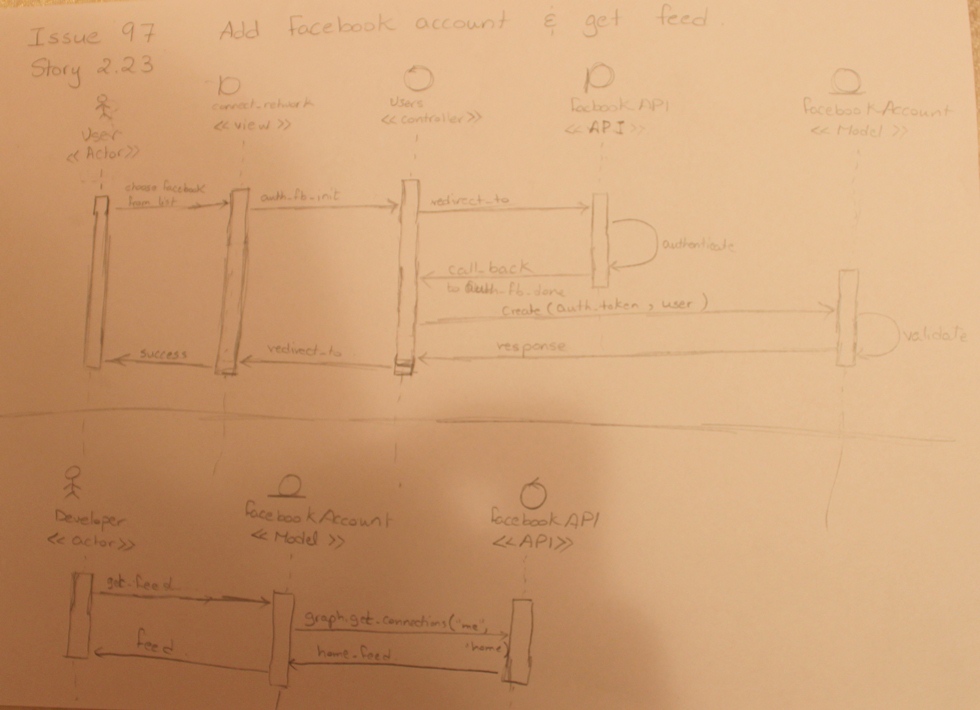 Issue 97   Add Facebook account & get feed.
Story 2.23
User
<< Actor >>
connect_network
<< view >>
Users
<< controller >>
facebook API
<< API >>
facebookAccount
<< Model >>
choose facebook
from list
auth_fb_init
redirect_to
authenticate
call_back
to auth_fb_done
Create ( auth_token , user )
validate
response
redirect_to
success
Developer
<< actor >>
facebookAccount
<< Model >>
facebook API
<< API >>
get_feed
graph.get_connections('me',
'home')
home_feed
feed